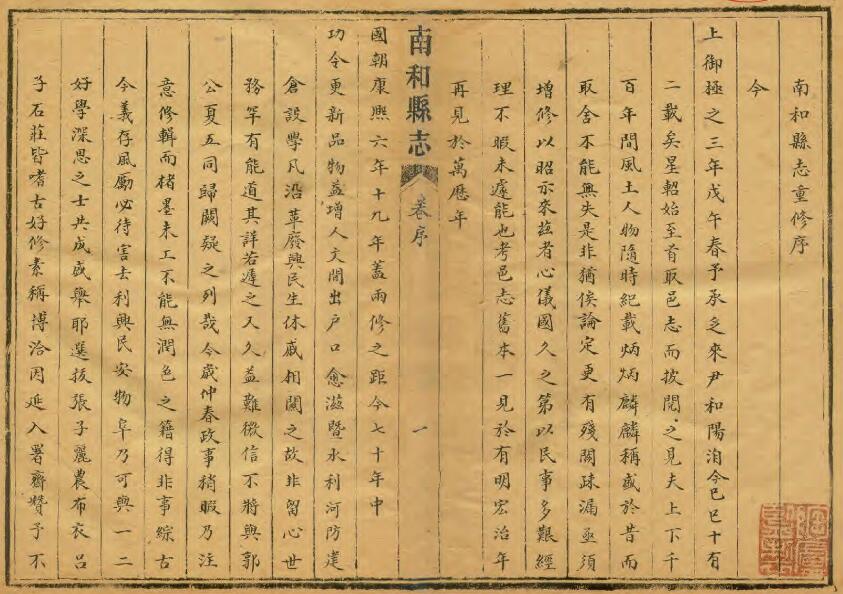 南和縣志重修序
今
上御極之三年戊午春予承乏來尹和陽洎今己巳十有
二載矣星軺始至首取邑志而披閱之見夫上下千
百年間風土人物隨時紀載炳炳麟麟稱盛於昔而
取舍不能無失是非猶俟論定更有殘闕疎漏亟須
增修以昭示來茲者心儀國久之第以民事多艱經
理不暇未遽能也考邑志舊本一見於有明宏治年
再見於萬歷年
南和縣志
卷序
一
國朝康熙六年十九年蓋兩修之距今七十年中
功令更新品物益增人文間出戶口愈滋暨水利河防建
倉設學凡沿革廢興民生休戚相關之故非留心世
務罕有能道其詳若遲之又久益難徵信不將與郭
公夏五同歸闕疑之列哉今歲仲春政事稍暇乃注
意修輯而楮墨未工不能無潤色之籍得非事綜古
今義存風勵必待害去利興民安物阜乃可與一二
好學深思之士共成盛舉耶選拔張子麗農布衣呂
子石莊皆嗜古好修素稱博洽因延入署齋贊予不